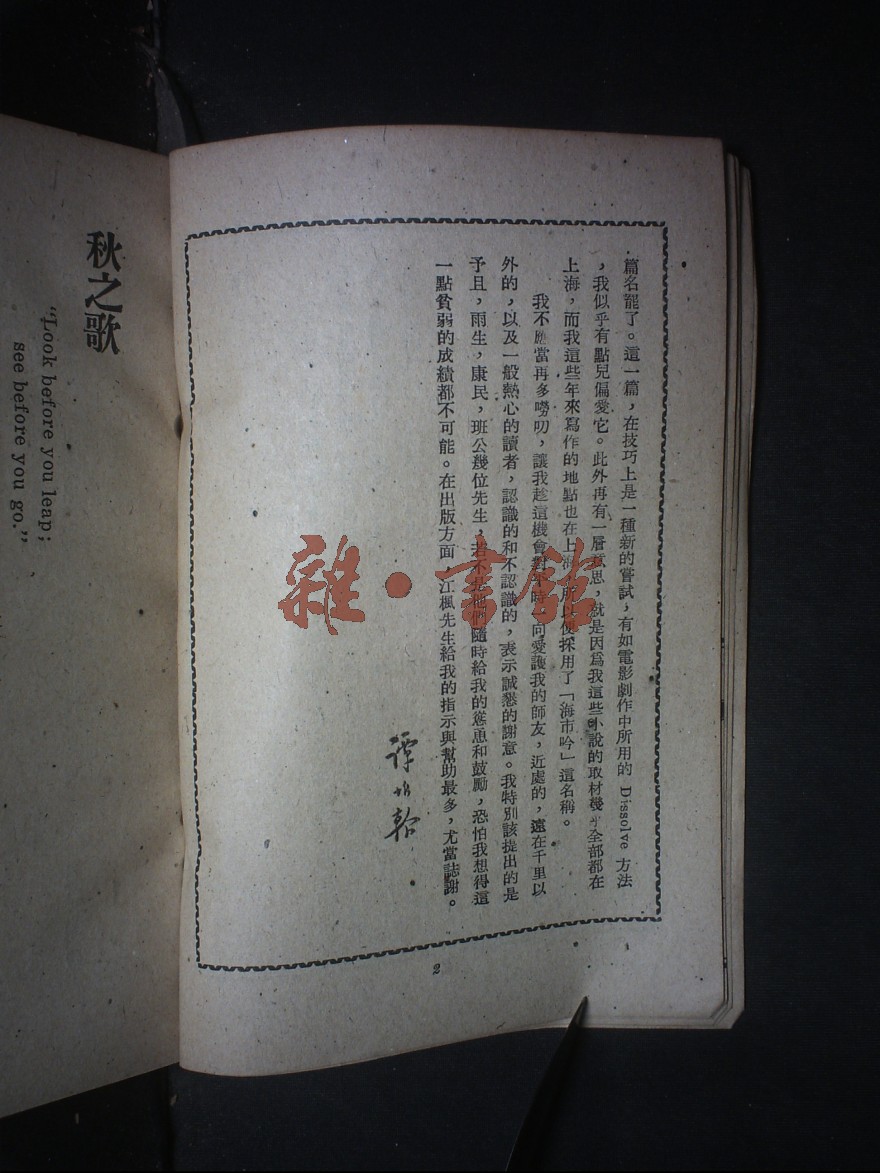 篇名罷了。這一篇，在技巧上是一種新的嘗試，有如電影劇作中所用的 Dissolve 方法
，我似乎有點兒偏愛它。此外再有一層意思，就是因爲我這些小說的取材幾乎全部都在
上海，而我這些年來寫作的地點也在上海，所以便採用了「海市吟」這名稱。
我不應當再多嘮叨，讓我趁這機會對平時一向愛護我的師友，近處的，遠在千里以
外的，以及一般熱心的讀者，認識的和不認識的，表示誠懇的謝意。我特別該提出的是
予且，雨生，康民，班公幾位先生，若不是他們隨時給我的慫恿和鼓勵，恐怕我想得這
一點貧弱的成績都不可能。在出版方面，江楓先生給我的指示與幫助最多，尤當誌謝。
譚惟翰
2
秋之歌
“Look before you leap;
see before you go.”
雜·書館